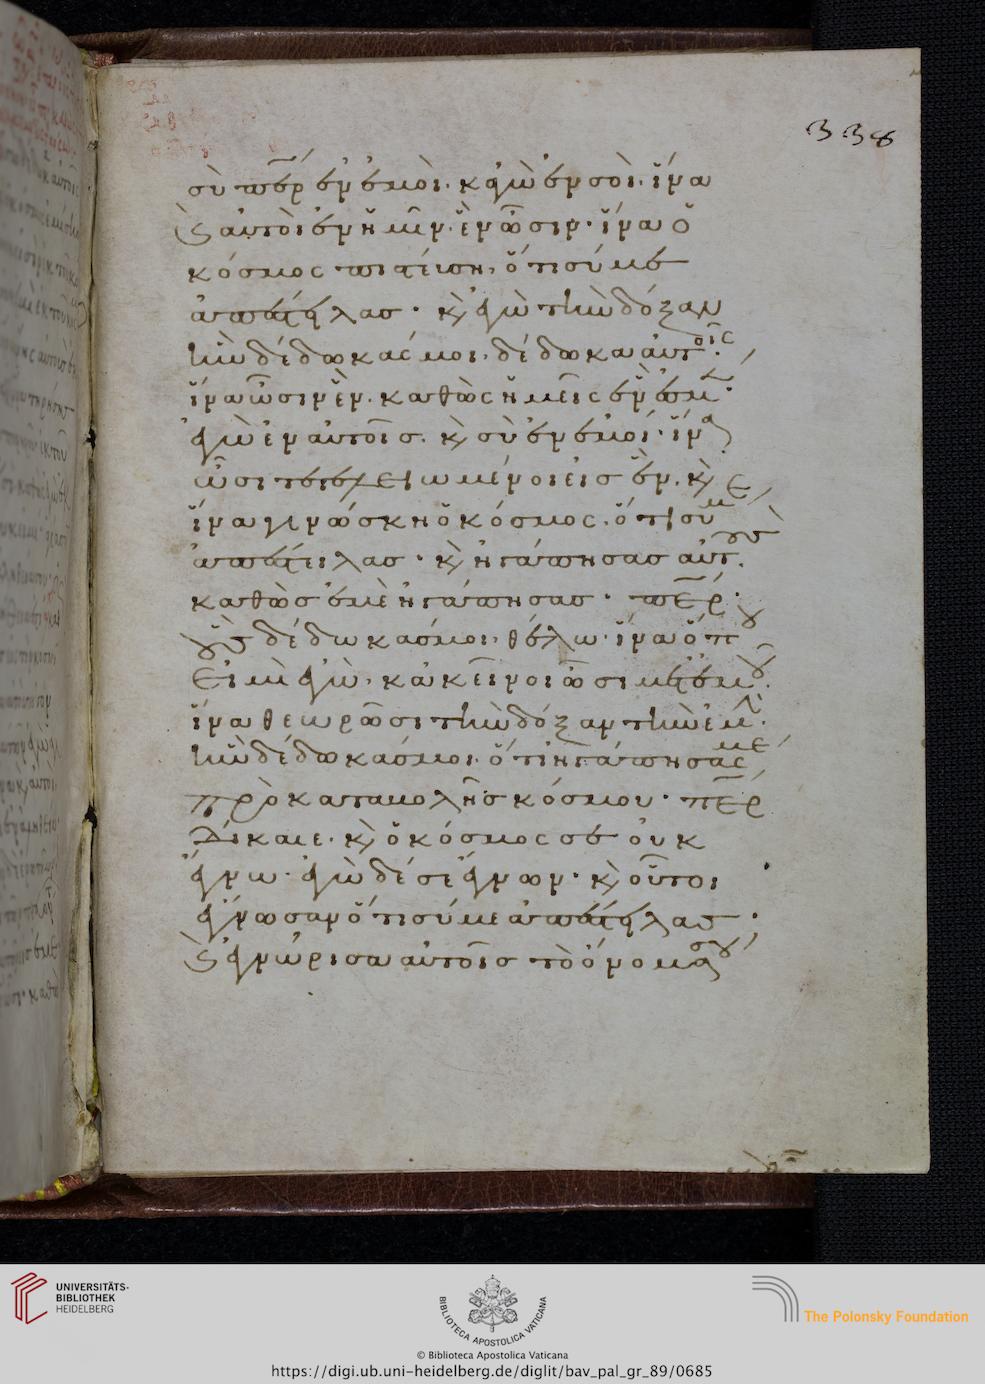 338
σὺ περ ἐν ἐμοὶ· κἀγὼ ἐν σοὶ· ἵνα
κ αὐτοὶ ἐν ἡμῖν ἓν ὦσιν· ἵνα ὁ
κόσμος πιστεύση, ὅτι σύ με
ἀπέστειλας· κ ἐγὼ τὴν δόξαν
ἣν δέδωκάς μοι, δέδωκα αὐτοῖς·
ἵνα ὦσιν ἓν· καθὼς ἡμεῖς ἓν ἐσμ·
ἐγὼ ἐν αὐτοῖς· κ σὺ ἐν ἐμοί· ἵνα
ὦσι τετελειωμένοι εἰς ἓν· κ
ἵνα γινώσκη ὁ κόσμος· ὅτι σύ με
ἀπέστειλας· κ ἠγάπησας αὐτοὺ
καθὼς ἐμὲ ἠγάπησας· περ·
οὓς δέδωκάς μοι· θέλω· ἵνα ὅπου
εἰμὶ ἐγὼ, κἀκεῖνοι ὦσι μετ ἐμοῦ·
ἵνα θεωρῶσι τὴν δόξαν τὴν ἐμ·
ἣν δέδωκάς μοι· ὅτι ἠγάπησάς με
πρὸ καταβολῆς κόσμου· περ
δίκαιε· κ ὁ κόσμος σε οὐκ
ἔγνω· ἐγὼ δέ σε ἔγνων· κ οὗτοι
ἔγνωσαν ὅτι σύ με ἀπέστειλας·
κ ἐγνώρισα αὐτοῖς τὸ ὄνομα σου
UNIVERSITÄTS-
BIBLIOTHEK
HEIDELBERG
BIBLIOTECA APOSTOLICA VATICANA
The Polonsky Foundation
© Biblioteca Apostolica Vaticana
https://digi.ub.uni-heidelberg.de/diglit/bav_pal_gr_89/0685